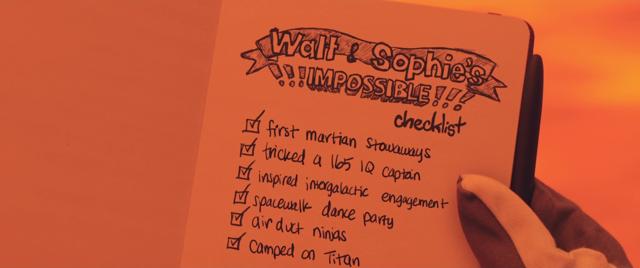 Walt & Sophie's
!!!IMPOSSIBLE!!!
checklist
first martian stowaways
tricked a 165 IQ captain
inspired intergalactic engagement
spacewalk dance party
air duct ninjas
camped on Titan